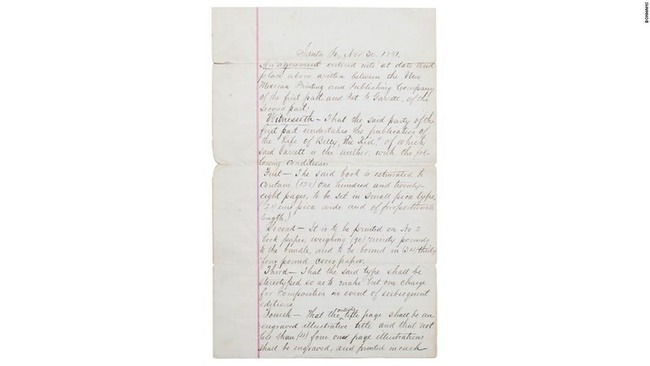 Santa Fe, Nov 20, 1881.
An agreement entered into at date and
place above written between the New
Mexican Printing and Publishing Company
of the first part and Pat F. Garrett, of the
second part.
Witnesseth – That the said party of the
first part undertakes the publication of
the "Life of Billy, the Kid," of which
said Garrett is the author, with the fol-
lowing conditions
First – The said book is estimated to
contain (128) one hundred and twenty-
eight pages, to be set in small pica type,
(24 ems pica wide and of proportionate
length)
Second – It is to be printed on No 2
book paper, weighing (90) ninety pounds
to the bundle, and to be bound in 34 thirty
four pound cover paper.
Third – That the said type shall be
stereotyped so as to make but one charge
for composition in event of subsequent
editions
Fourth – That the outside title page shall be an
engraved illustrative title and that not
less than (4) four one page illustrations
shall be engraved, and printed in each
BONHAMS